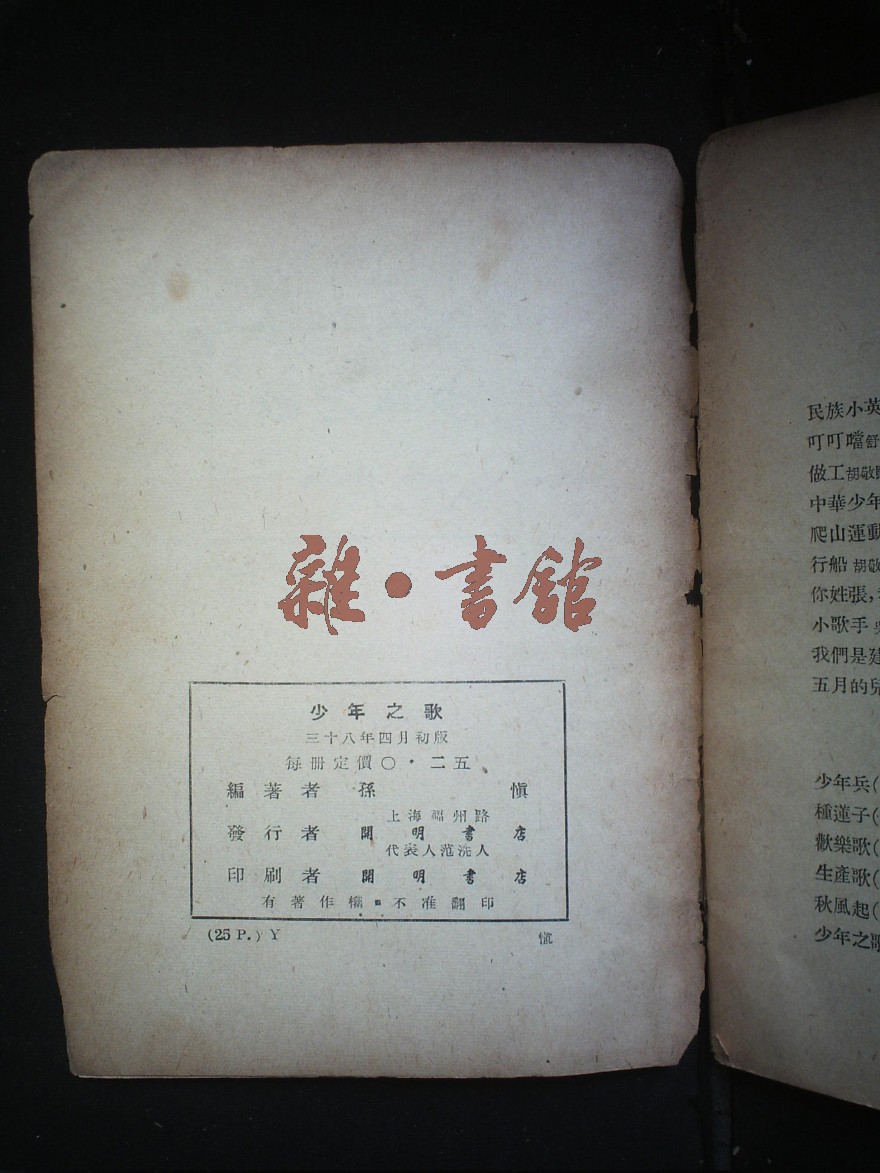 雜•書館
少年之歌
三十八年四月初版
每册定價〇·二五
編著者 孫 愼
上海福州路
發行者 開明書店
代表人范洗人
印刷者 開明書店
有著作權·不准翻印
(25 P.) Y 愼
民族小英
叮叮噹
做工 胡敬
中華少年
爬山運動
行船 胡敬
你姓張，
小歌手
我們是建
五月的兒
少年兵(
種蓮子(
歡樂歌(
生產歌(
秋風起(
少年之歌